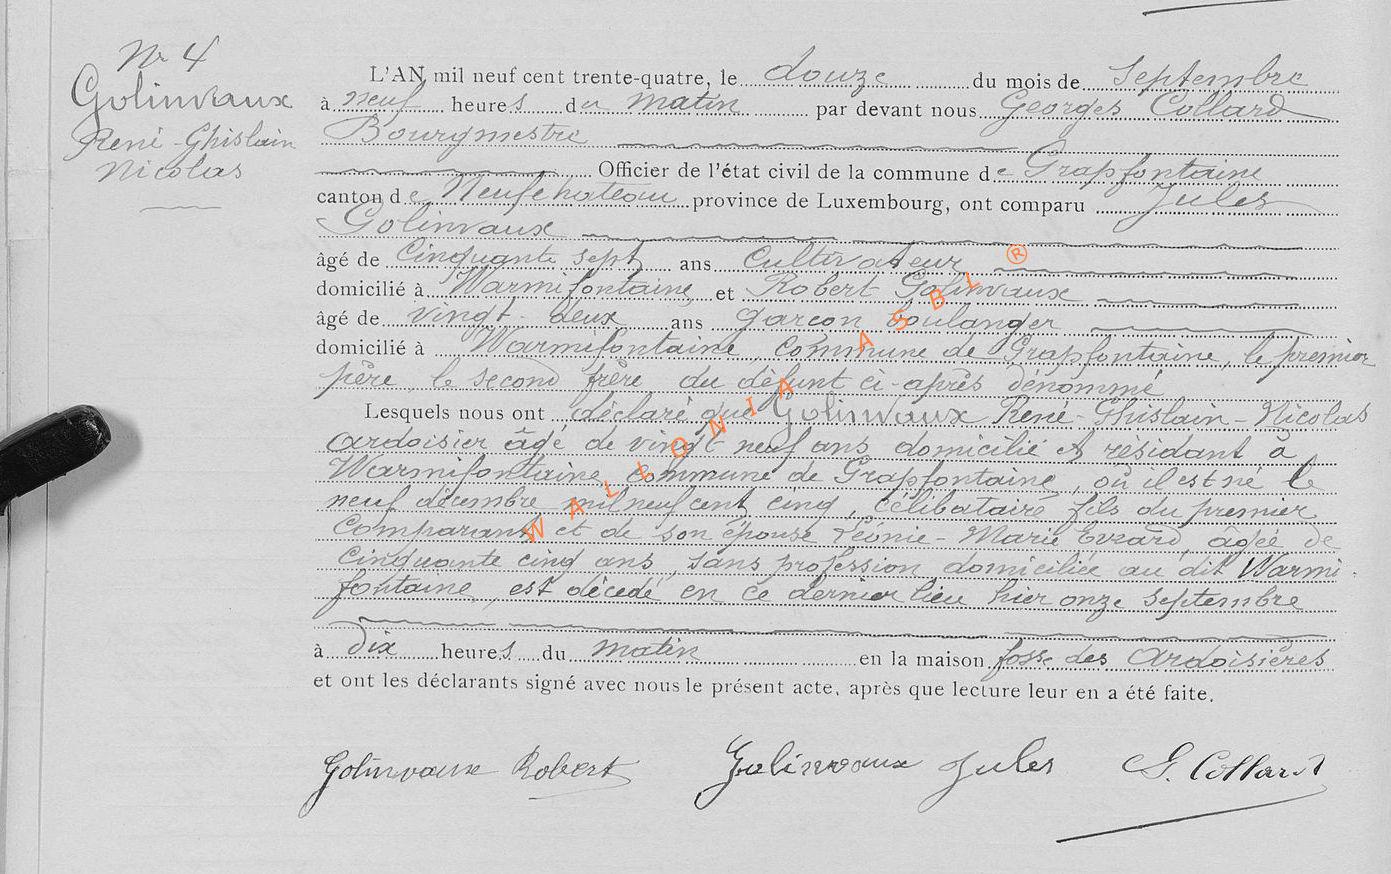 Nº 4
Golinvaux
René-Ghislain
Nicolas
L'AN mil neuf cent trente-quatre, le douze du mois de septembre
à neuf heures du matin par devant nous Georges Collard
Bourgmestre
Officier de l'état civil de la commune de Grapfontaine
canton de Neufchateau province de Luxembourg, ont comparu Jules
Golinvaux
âgé de Cinquante sept ans Cultivateur
domicilié à Warmifontaine et Robert Golinvaux
âgé de vingt-deux ans garcon boulanger
domicilié à Warmifontaine, commune de Grapfontaine, le premier
père, le second frère du défunt ci-après dénommé
Lesquels nous ont déclaré que Golinvaux René-Ghislain-Nicolas
ardoisier âgé de vingt-neuf ans domicilié et résidant à
Warmifontaine, commune de Grapfontaine, où il est né le
neuf décembre mil neuf cent cinq, célibataire fils du premier
Comparant et de son épouse Léonie-Marie Evrard agée de
Cinquante cinq ans, sans profession domiciliée au dit Warmi-
fontaine, est décédé en ce dernier lieu hier onze septembre
à dix heures du matin en la maison fosse des Ardoisières
et ont les déclarants signé avec nous le présent acte, après que lecture leur en a été faite.
Golinvaux Robert Golinvaux Jules G. Collard
WALLONIA ASBL ®